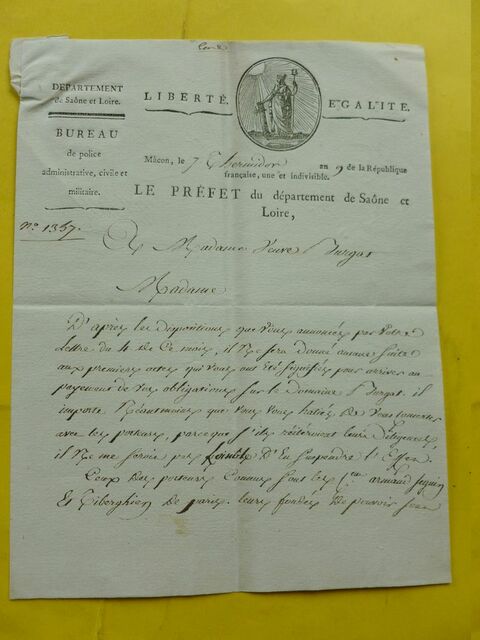 DEPARTEMENT
de Saône et Loire.
LIBERTÉ.
EGALITE.
BUREAU
de police
administrative, civile et
militaire.
Mâcon, le 7 Thermidor an 9 de la République
française, une et indivisible.
LE PRÉFET du département de Saône et
Loire,
no. 1357.
A Madame Veuve Burgat
Madame
D'après les dispositions que vous annoncés par votre
lettre du 4 de ce mois, il ne sera donné aucune suite
aux premiers actes qui vous ont été signifiés pour arriver au
payement de vos obligations sur le Domaine Burgat. il
importe Néantmoins que vous vous hatiés de vous
avec les porteurs, parceque s'ils réitéroient leurs diligences
il ne me seroit pas d'En suspendre l'Effet.
Ceux des porteurs connus sont les Cens armand Seguin
Et Tiberghien de paris. leurs fondés de pouvoir sont